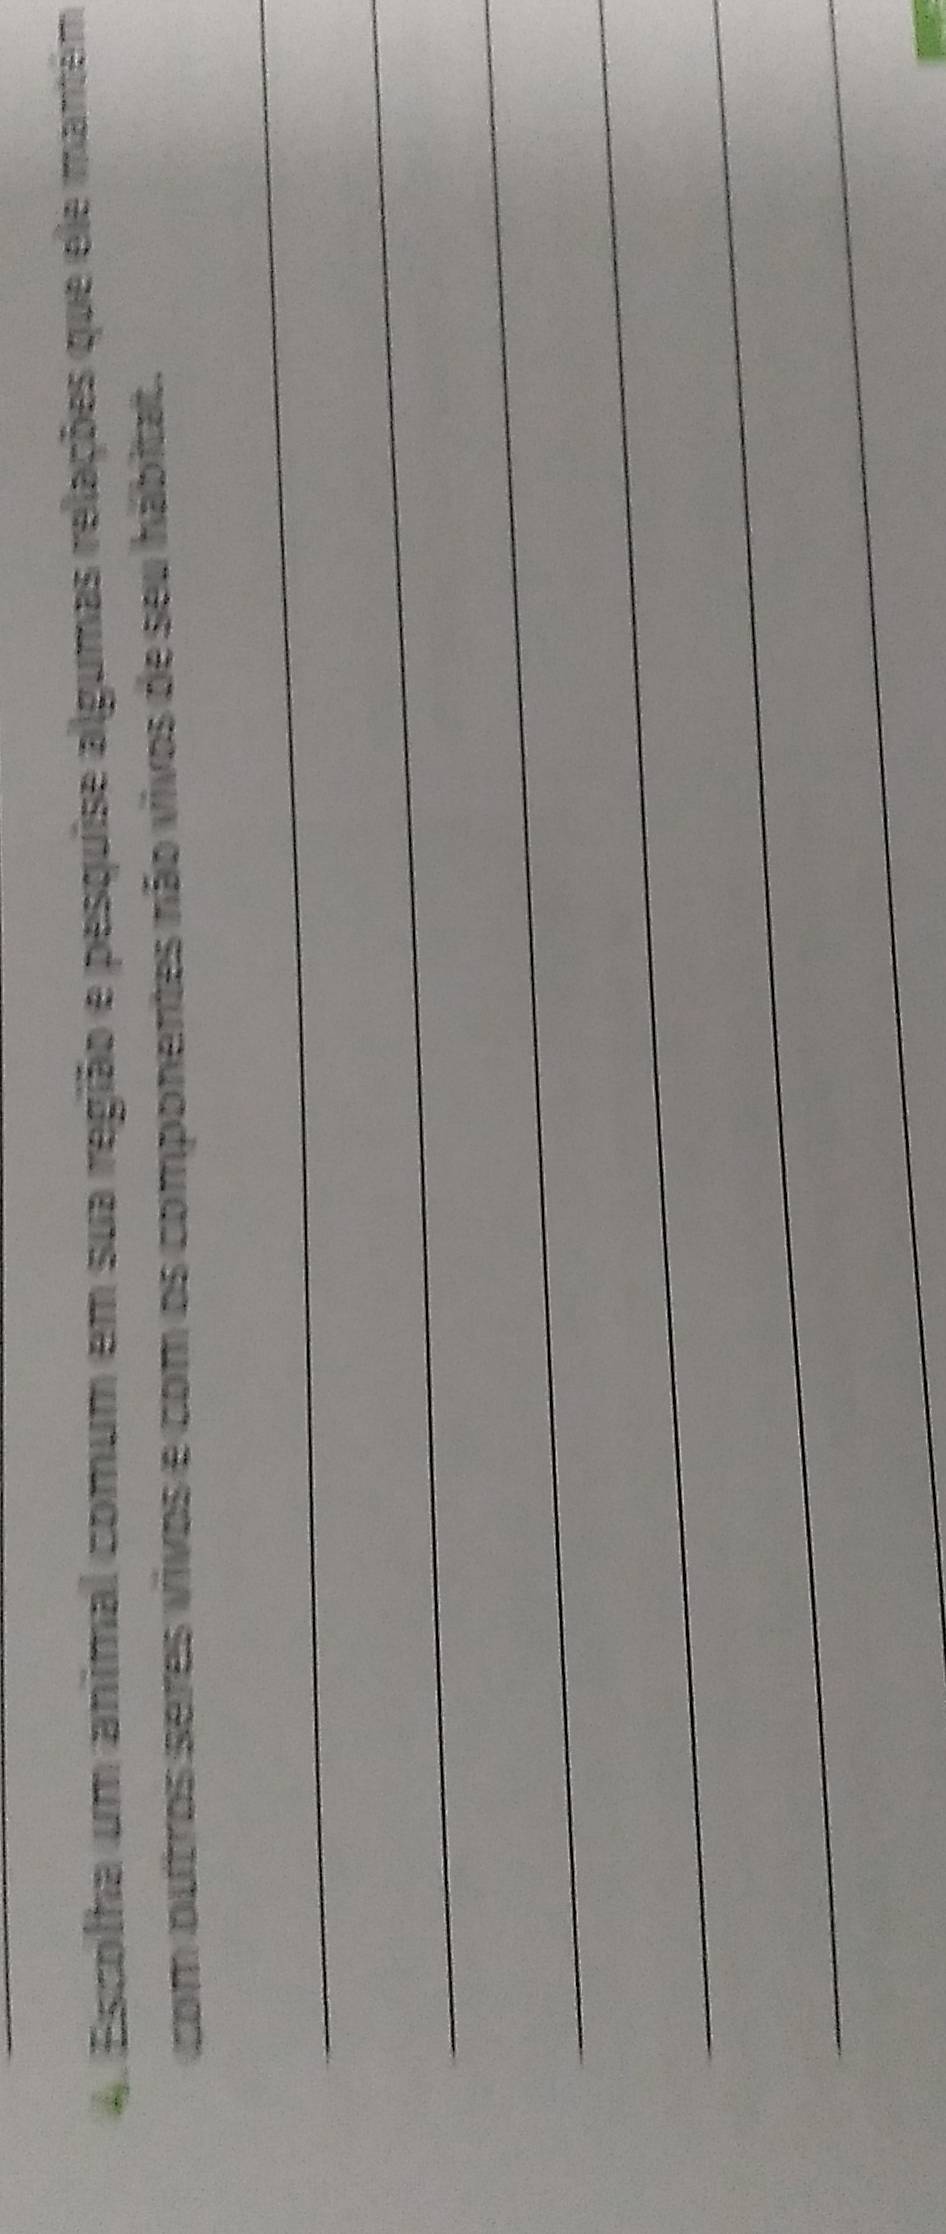 4. Escolha um animal comum em sua região e pesquise algumas relações que ele mantém
com outros seres vivos e com os componentes não vivos de seu hábitat.